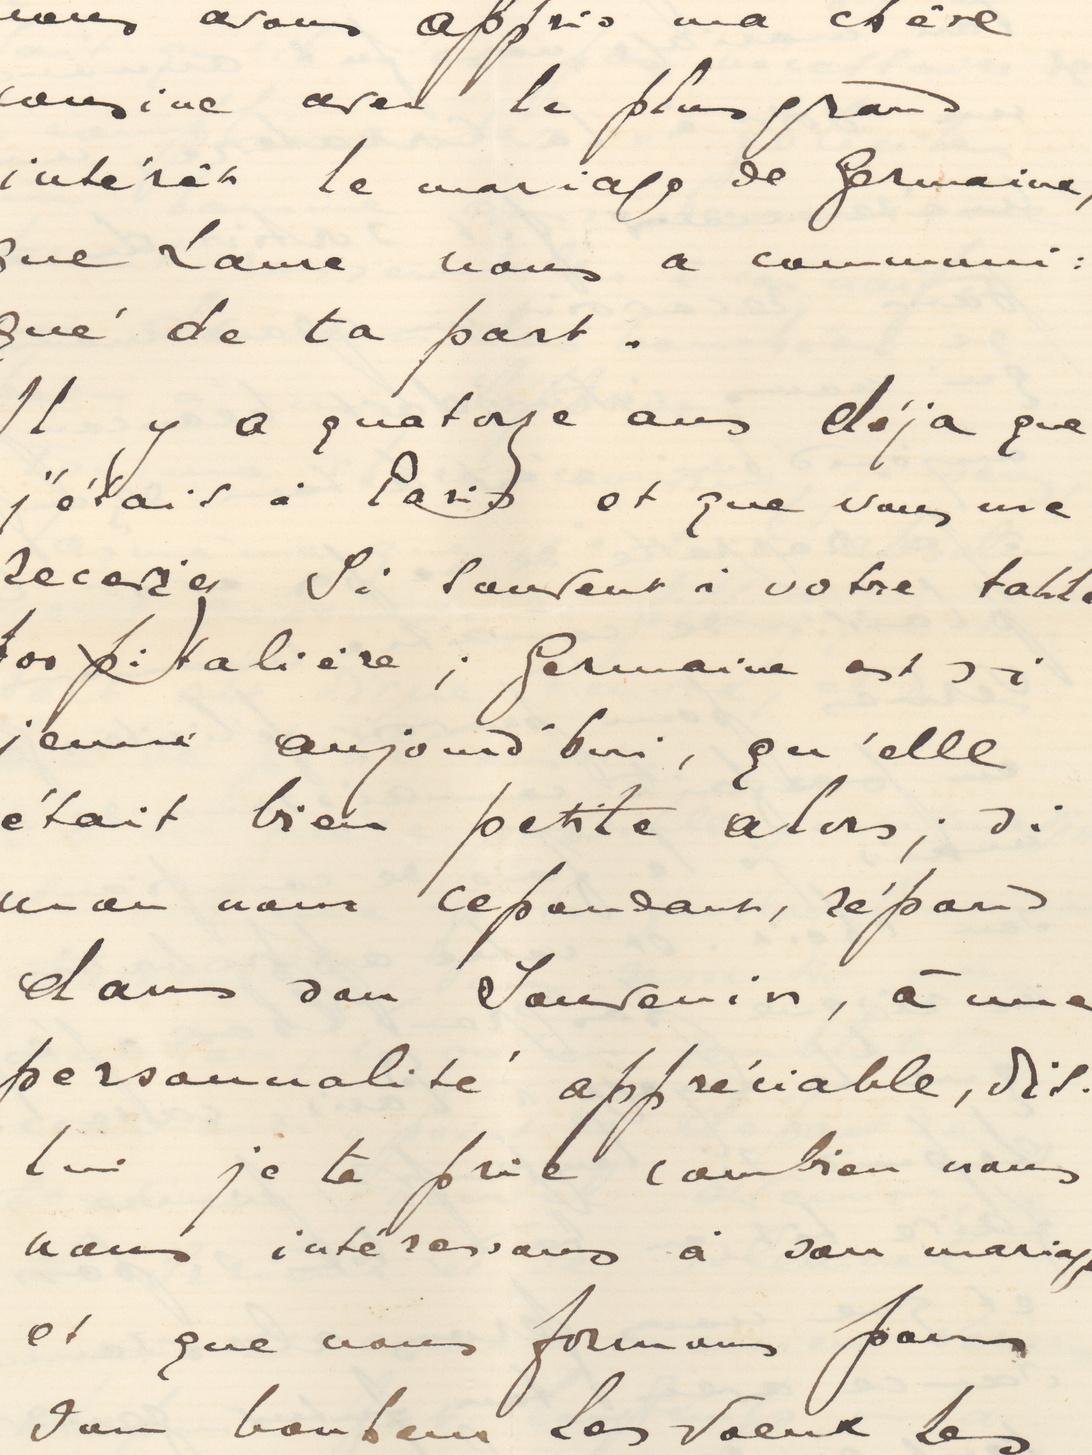 nous avons appris ma chère
cousine avec le plus grand
intérêt le mariage de Germaine,
que Laure nous a communi:
qué de ta part.
Il y a quatorze ans déja que
j'étais à Paris et que vous me
receviez si souvent à votre table
hospitalière ; Germaine est si
jeune aujourd'hui, qu'elle
était bien petite alors ; si
mon nom cependant, répond
dans son souvenir, à une
personnalité appréciable, dis-
lui je te prie combien nous
nous intéressons à son mariage
et que nous formons pour
son bonheur les vœux les